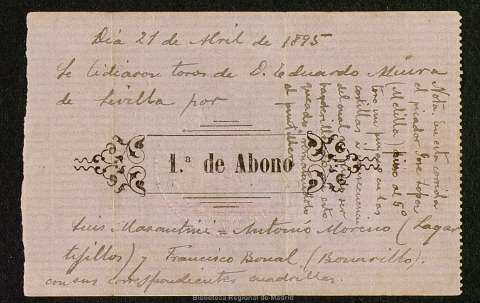 Dia 21 de Abril de 1895
Se lidiaron toros de D. Eduardo Miura
de Sevilla por
1.ª de Abono
Luis Mazantini = Antonio Moreno (Lagar
tijillos) y Francisco Bonal (Bonarillo)
con sus correspondientes cuadrillas.
Nota: en esta corrida
el picador José
(Melilla) al 5º
toro un puyazo en las
costillas a consecuencia
del cual
Biblioteca Regional de Madrid